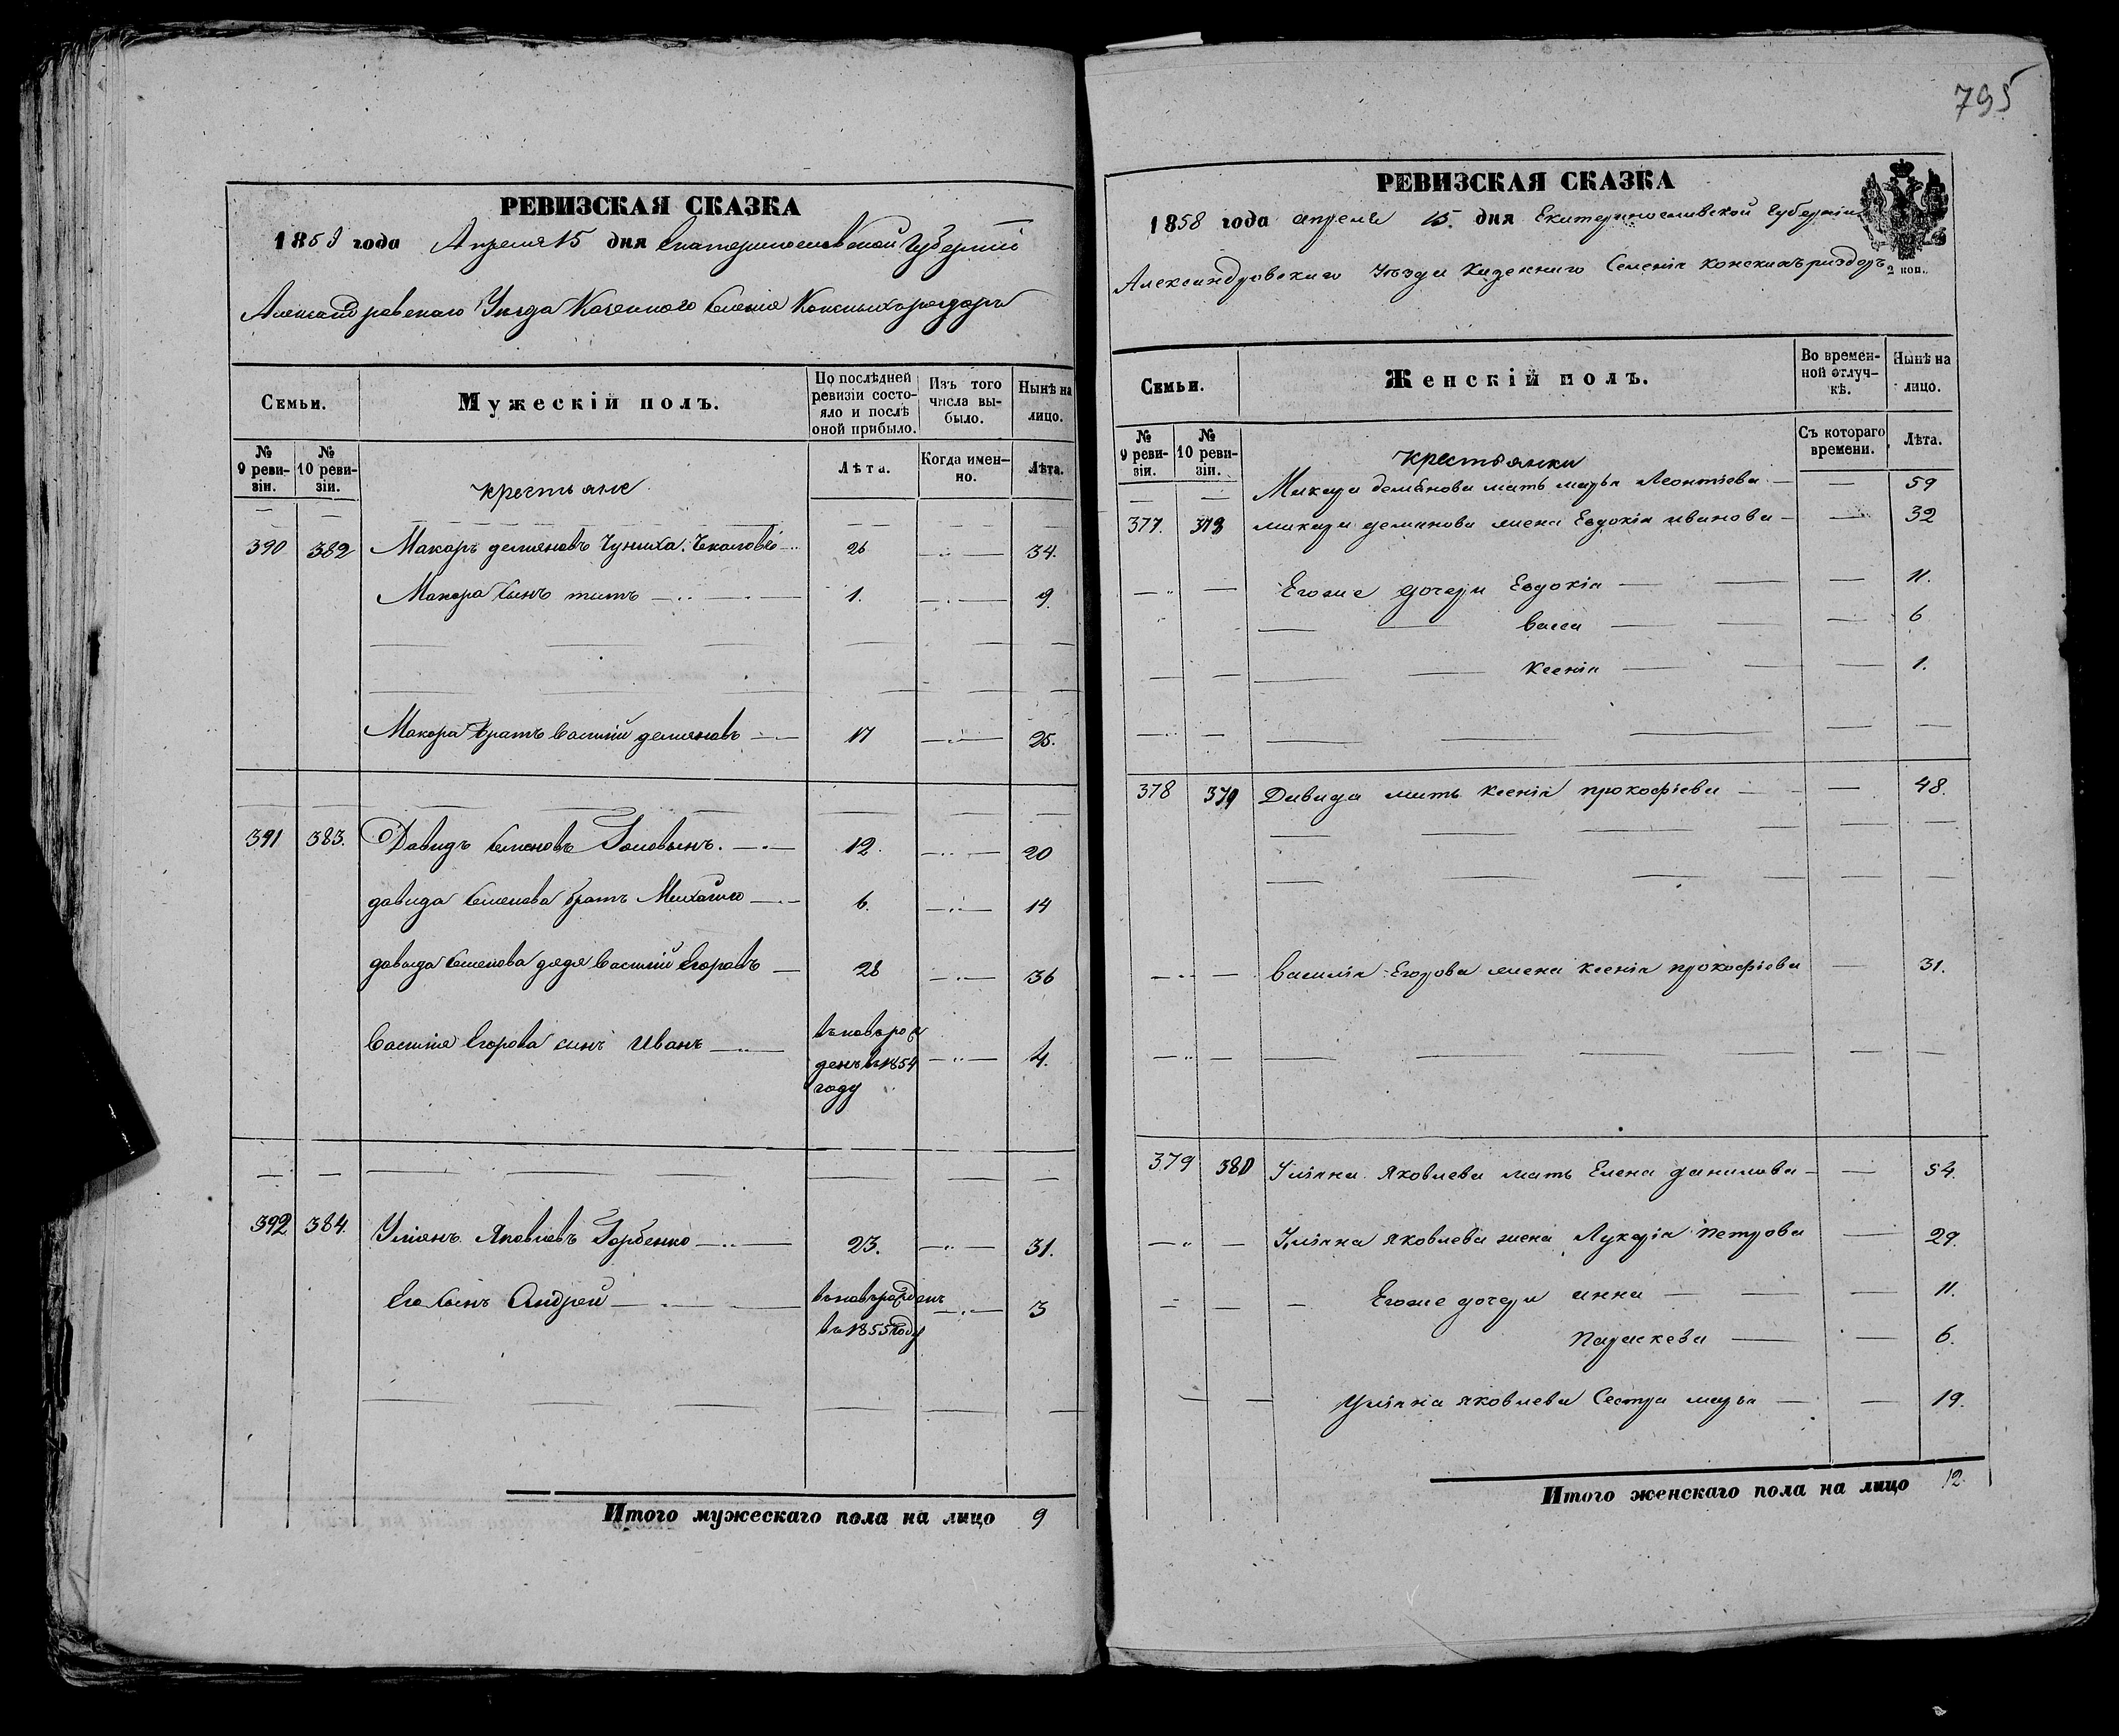 795
РЕВИЗСКАЯ СКАЗКА
1858 года Апреля 15 дня Екатеринославской Губернии
Александровскаго Уезда Казенного Селения Конскихъ раздоръ
Семьи.
Мужескій полъ.
По послѣдней ревизіи состояло и послѣ оной прибыло.
Изъ того числа выбыло.
Нынѣ на лицо.
№ 9 ревизіи.
№ 10 ревизіи.
крестьяне
Лѣта.
Когда именно.
Лѣта.
390 382 Макаръ демяновъ 26 34.
Макара Сынъ титъ 1. 9.
Макара братъ Василий демяновъ 17 25.
391 383. Давидъ Семеновъ 12. 20
давида Семенова братъ Михайло 6. 14
давида Семенова дядя Василий Егоровъ 28 36
Василия Егорова сынъ Иванъ вьновь рожденъ в 1854 году 4.
392 384. Улиянъ Яковлевъ Горбенко 23. 31.
Его Сынъ Андрей вьновь рожденъ в 1855 году 3
Итого мужескаго пола на лицо 9
РЕВИЗСКАЯ СКАЗКА
1858 года апреля 15. дня Екатеринославской Губернии
2 коп.
Александровскаго Уезда Казеннаго Селения Конскихъ раздоръ
Семьи.
Женскій полъ.
Во временной отлучкѣ.
Нынѣ на лицо.
№ 9 ревизіи.
№ 10 ревизіи.
крестьянки
Съ котораго времени.
Лѣта.
Макара демянова мать марья Леонтіева 59
377. 378 макара демянова жена Евдокія иванова 32
Егоже дочери Евдокія 11.
васса 6
Ксенія 1.
378 379 Давида мать ксенія прокофіева 48.
василія Егорова жена ксенія прокофіева 31.
379 380 Уліяна Яковлева мать Елена данилова 54.
Уліяна Яковлева жена Лукерія петрова 29.
Егоже дочери анна 11.
Параскева 6.
Уліяна яковлева Сестра марья 19.
Итого женскаго пола на лицо 12.